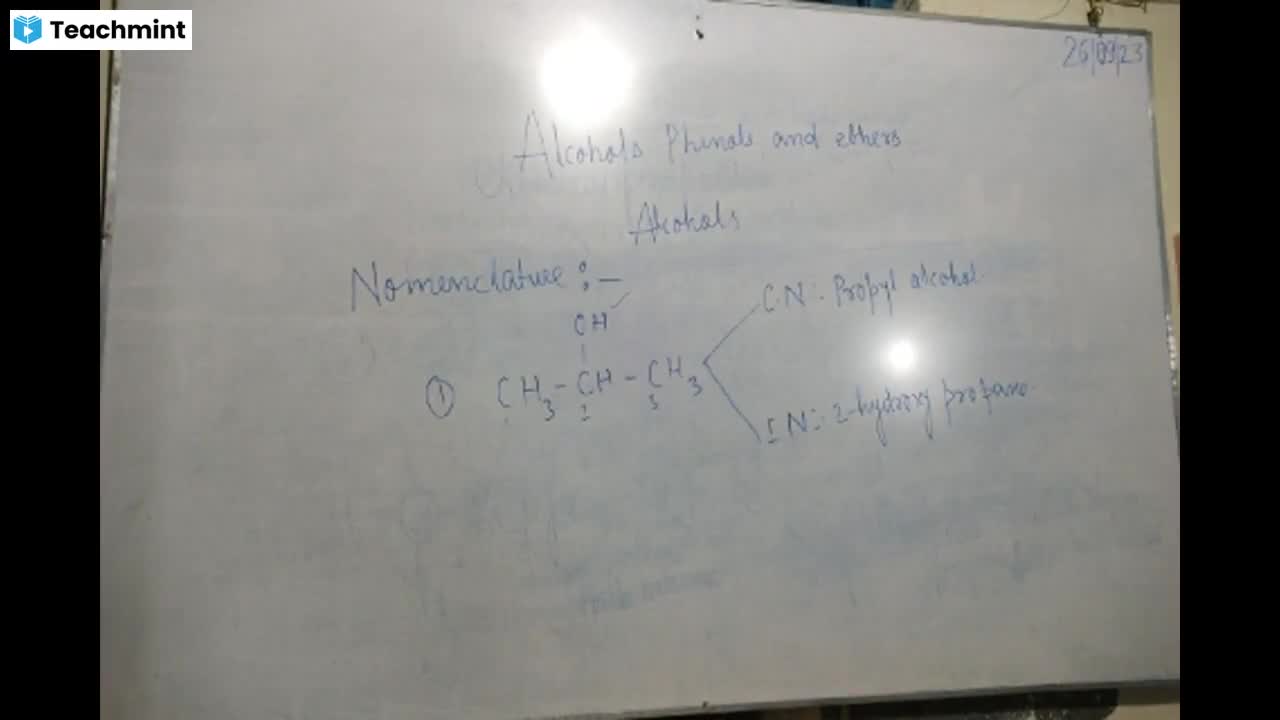 Teachmint
26/09/23
Alcohals Phinols and ethers
Alcohals
Nomenclature :-
CH
① CH3 - CH - CH3
2 3
C.N. Propyl alcohol
IN:. 2-hydroxy propane.